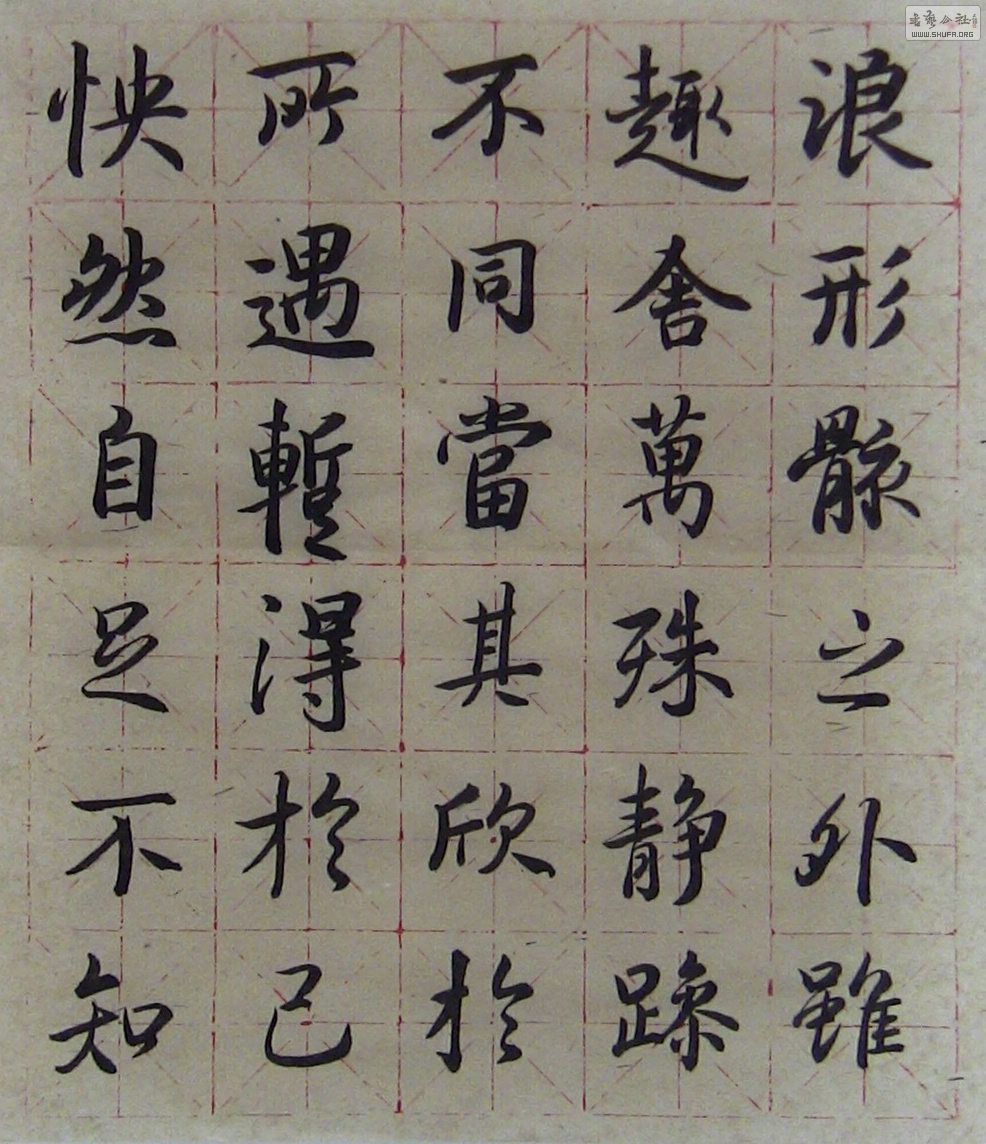 浪形骸之外雖
趣舍萬殊靜躁
不同當其欣於
所遇蹔得於己
怏然自足不知
書藝公社
WWW.SHUFA.ORG